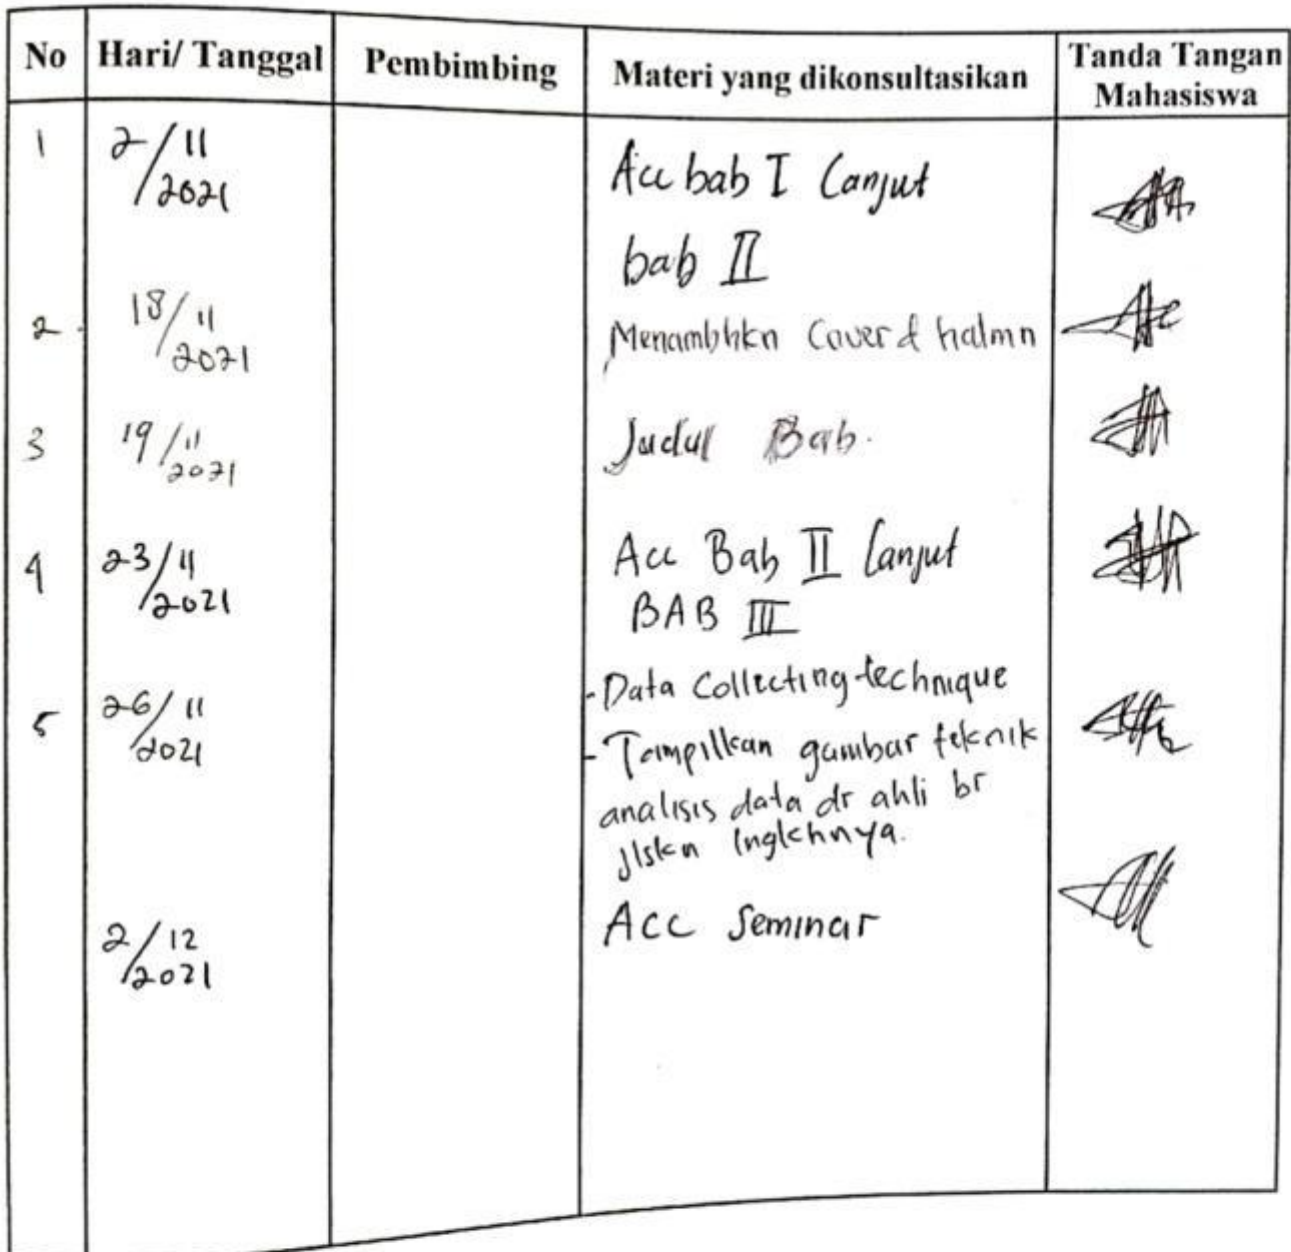 No Hari/ Tanggal Pembimbing Materi yang dikonsultasikan Tanda Tangan Mahasiswa
1 2/11/2021 Acc bab I lanjut
bab II
2. 18/11/2021 Menambhkn Cover & halmn
3 19/11/2021 Judul Bab.
4 23/11/2021 Acc Bab II lanjut
BAB III
5 26/11/2021 - Data Collecting technique
- Tampilkan gambar teknik
analisis data dr ahli br
jlskn lngkhnya.
2/12/2021 Acc Seminar